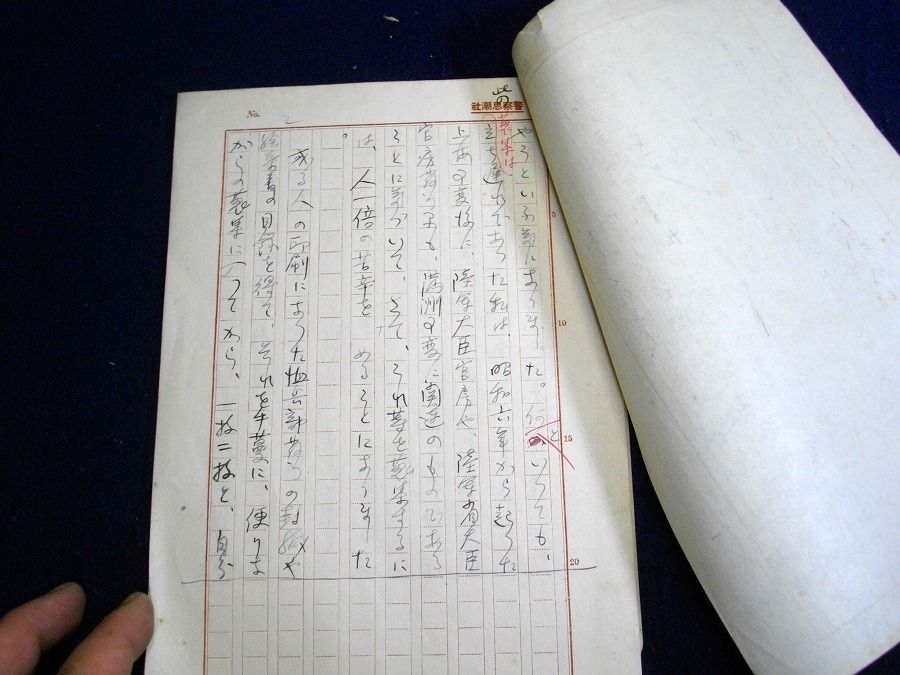 警察思潮社
No.
2
此の
蒐集は
やうといふ気になりました。何といつても、
立ち遅れであつた私は、昭和六年から起つた
上海事変後に、陸軍大臣官房や、陸軍省大臣
官房発行の、満洲事変に関連のものである
ことに気づいて、さて、これ等を蒐集するに
は、人一倍の苦辛を めることになりました
。
或る人の印刷になつた 封緘や
絵葉書の目録を得て、それを 、便りな
からの蒐集に入つてから、一枚二枚と、自分
5
10
15
20